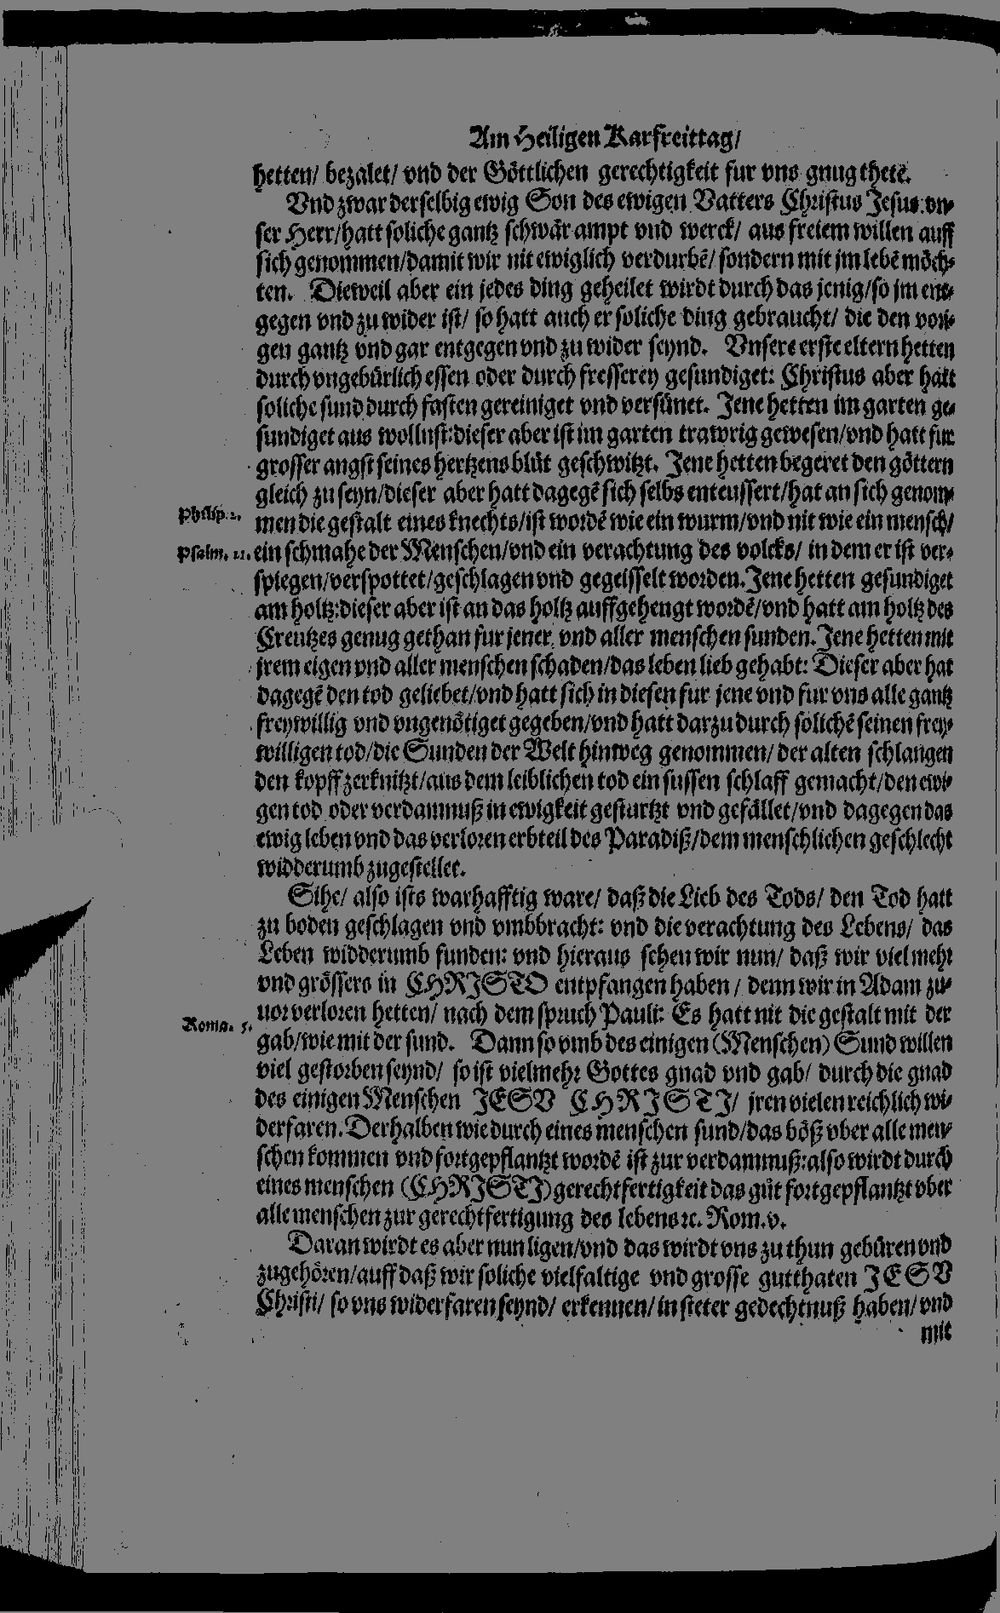 Am Heiligen Karfreittag/
hetten/ bezalet/ vnd der Göttlichen gerechtigkeit fur vns gnug thete.
Vnd zwar derselbig ewig Son des ewigen Vatters Christus Jesus vn-
ser Herr/hatt soliche gantz schwär ampt vnd werck/ aus freiem willen auff
sich genommen/damit wir nit ewiglich verdurbē/ sondern mit jm lebē möch-
ten. Dieweil aber ein jedes ding geheilet wirdt durch das jenig/so jm ent-
gegen vnd zu wider ist/ so hatt auch er soliche ding gebraucht/ die den vori-
gen gantz vnd gar entgegen vnd zu wider seynd. Vnsere erste eltern hetten
durch vngebürlich essen oder durch fresserey gesundiget: Christus aber hatt
soliche sund durch fasten gereiniget vnd versünet. Jene hetten im garten ge-
sundiget aus wollust:dieser aber ist im garten trawrig gewesen/vnd hatt fur
grosser angst seines hertzens blüt geschwitzt. Jene hetten begeret den göttern
gleich zu seyn/dieser aber hatt dagegē sich selbs enteussert/hat an sich genom-
Philip. 2. men die gestalt eines knechts/ist wordē wie ein wurm/vnd nit wie ein mensch/
Psalm. 21. ein schmahe der Menschen/vnd ein verachtung des volcks/ in dem er ist ver-
spiegen/verspottet/geschlagen vnd gegeisselt worden. Jene hetten gesundiget
am holtz:dieser aber ist an das holtz auffgehengt wordē/vnd hatt am holtz des
Creutzes genug gethan fur jener, vnd aller menschen sunden. Jene hetten mit
jrem eigen vnd aller menschen schaden/das leben lieb gehabt: Dieser aber hat
dagegē den tod geliebet/vnd hatt sich in diesen fur jene vnd fur vns alle gantz
freywillig vnd vngenötiget gegeben/vnd hatt darzu durch söllichē seinen frey-
willigen tod/die Sunden der Welt hinweg genommen/ der alten schlangen
den kopff zerknitzt/aus dem leiblichen tod ein sussen schlaff gemacht/den ewi-
gen tod oder verdamnuß in ewigkeit gesturtzt vnd gefället/vnd dagegen das
ewig leben vnd das verloren erbteil des Paradiß/dem menschlichen geschlecht
widderumb zugestellet.
Sihe/ also ists warhafftig ware/ daß die Lieb des Tods/ den Tod hatt
zu boden geschlagen vnd vmbbracht: vnd die verachtung des Lebens/ das
Leben widderumb funden: vnd hieraus sehen wir nun/ daß wir viel mehr
vnd grössers in CHRISTO entpfangen haben / denn wir in Adam zu-
uor verloren hetten/ nach dem spruch Pauli: Es hatt nit die gestalt mit der
Roma. 5. gab/wie mit der sund. Dann so vmb des einigen (Menschen) Sund willen
viel gestorben seynd/ so ist vielmehr Gottes gnad vnd gab/ durch die gnad
des einigen Menschen JESV CHRISTI/ jren vielen reichlich wi-
derfaren. Derhalben wie durch eines menschen sund/das böß vber alle men-
schen kommen vnd fortgepflantzt wordē ist zur verdamnuß:also wirdt durch
eines menschen (CHRISTI) gerechtfertigkeit das güt fortgepflantzt vber
alle menschen zur gerechtfertigung des lebens ꝛc. Rom. v.
Daran wirdt es aber nun ligen/vnd das wirdt vns zu thun gebüren vnd
zugehören/auff daß wir soliche vielfaltige vnd grosse gutthaten JESV
Christi/ so vns widerfaren seynd/ erkennen/ in steter gedechtnuß haben/ vnd
mit